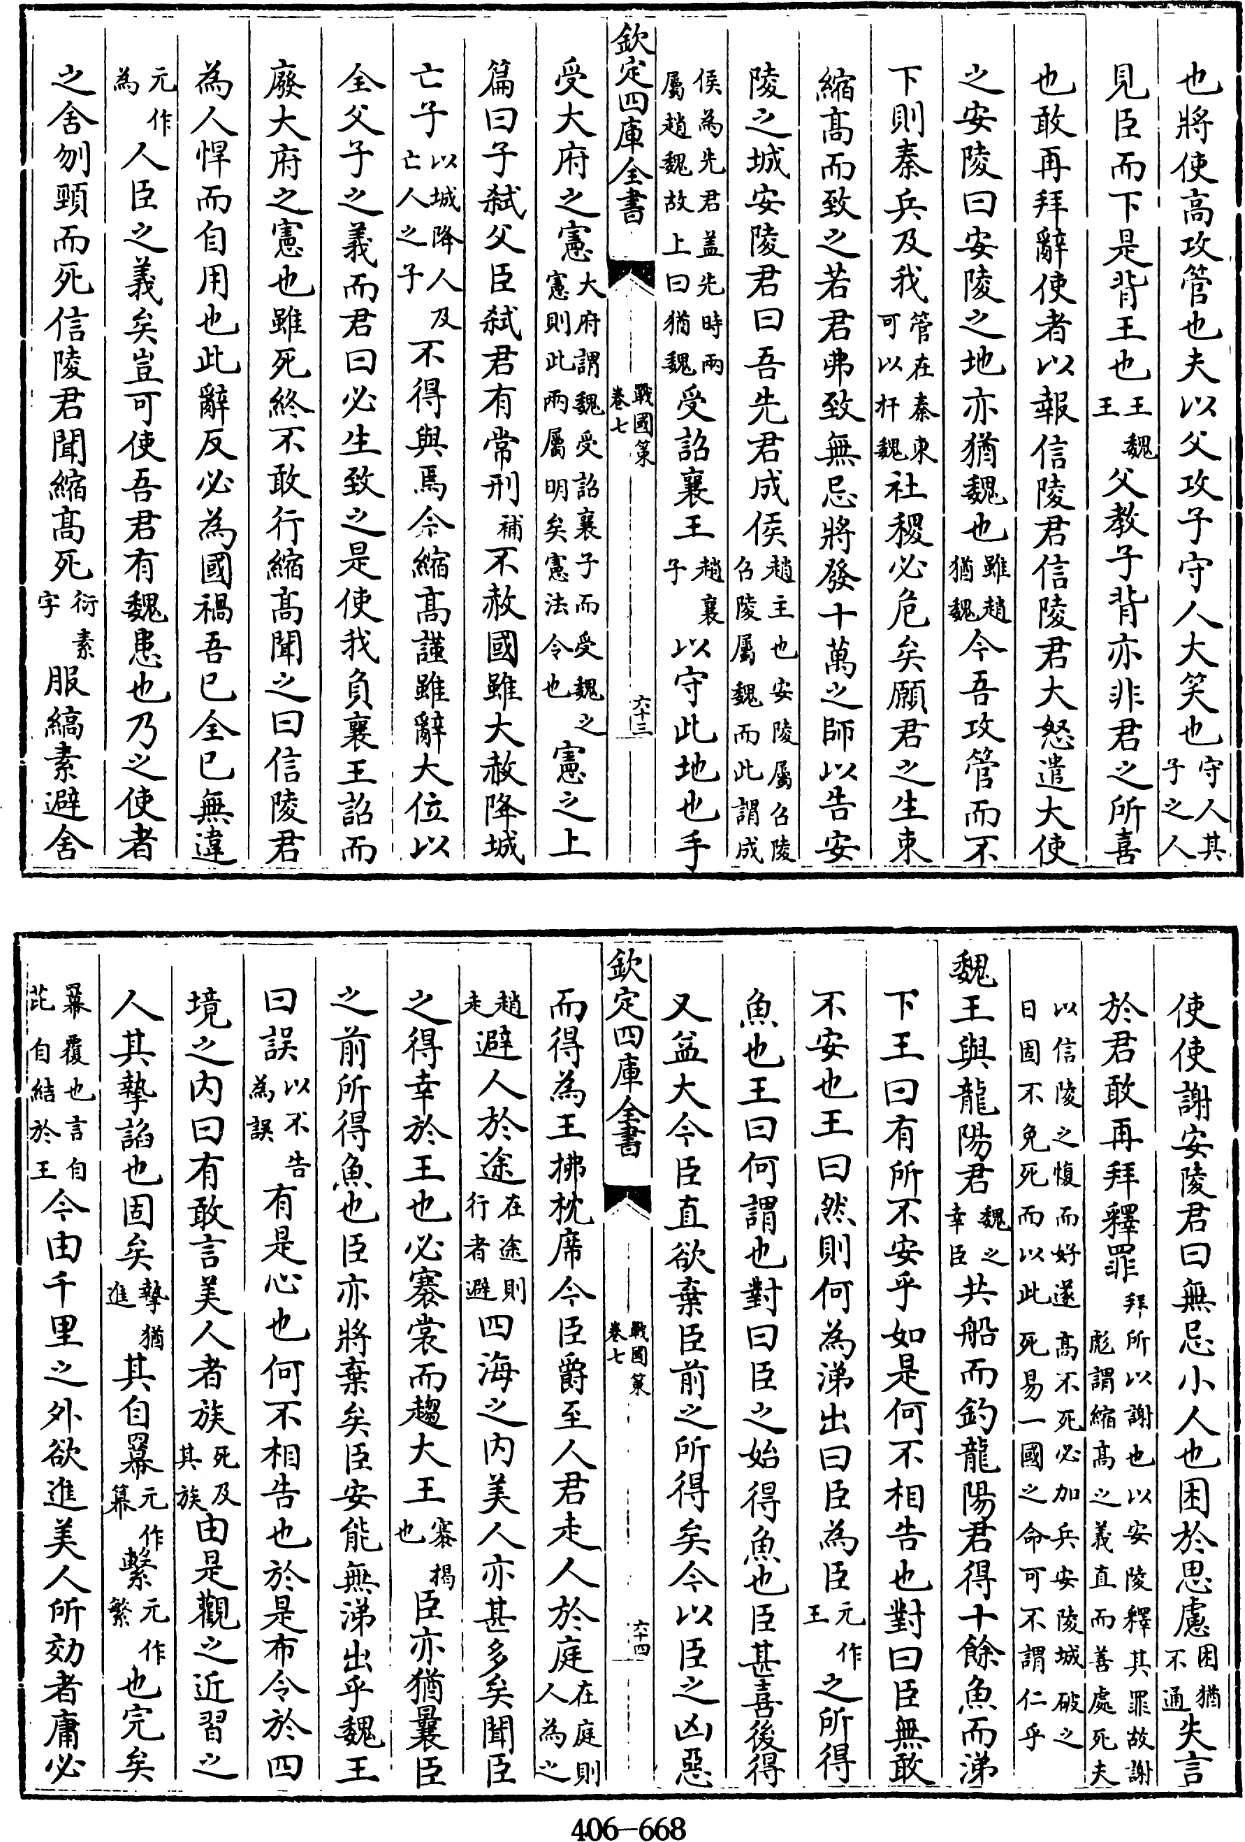 也將使高攻管也夫以父攻子守人大笑也守人其子之人
見臣而下是背王也王魏王父教子背亦非君之所喜
也敢再拜辭使者以報信陵君信陵君大怒遣大使
之安陵曰安陵之地亦猶魏也雖趙猶魏今吾攻管而不
下則秦兵及我管在秦東可以扞魏社稷必危矣願君之生束
縮高而致之若君弗致無忌將發十萬之師以告安
陵之城安陵君曰吾先君成侯趙主也安陵屬召陵召陵屬魏而此謂成
侯為先君盖先時兩屬趙魏故上曰猶魏受詔襄王趙襄子以守此地也手
欽定四庫全書 戰國策卷七 六十三
受大府之憲大府謂魏受詔襄子而受魏之憲則此兩屬明矣憲法令也憲之上
篇曰子弑父臣弑君有常刑補不赦國雖大赦降城
亡子以城降人及亡人之子不得與焉今縮高謹雖辭大位以
全父子之義而君曰必生致之是使我負襄王詔而
廢大府之憲也雖死終不敢行縮高聞之曰信陵君
為人悍而自用也此辭反必為國禍吾已全已無違
元作為人臣之義矣豈可使吾君有魏患也乃之使者
之舍刎頸而死信陵君聞縮高死衍素字服縞素避舍
使使謝安陵君曰無忌小人也困於思慮困猶不通失言
於君敢再拜釋罪拜所以謝也以安陵釋其罪故謝彪謂縮高之義直而善處死夫
以信陵之愎而好遂高不死必加兵安陵城破之日固不免死而以此死易一國之命可不謂仁乎
魏王與龍陽君魏之幸臣共船而釣龍陽君得十餘魚而涕
下王曰有所不安乎如是何不相告也對曰臣無敢
不安也王曰然則何為涕出曰臣為臣元作王之所得
魚也王曰何謂也對曰臣之始得魚也臣甚喜後得
又益大今臣直欲棄臣前之所得矣今以臣之凶惡
欽定四庫全書 戰國策卷七 六十四
而得為王拂枕席今臣爵至人君走人於庭在庭則人為之
趙走避人於途在途則行者避四海之內美人亦甚多矣聞臣
之得幸於王也必褰裳而趨大王褰揭也臣亦猶曩臣
之前所得魚也臣亦將棄矣臣安能無涕出乎魏王
曰誤以不告為誤有是心也何不相告也於是布令於四
境之內曰有敢言美人者族死及其族由是觀之近習之
人其摯諂也固矣摯猶進其自冪元作幕繫元作繁也完矣
冪覆也言自芘自結於王今由千里之外欲進美人所効者庸必
406-668